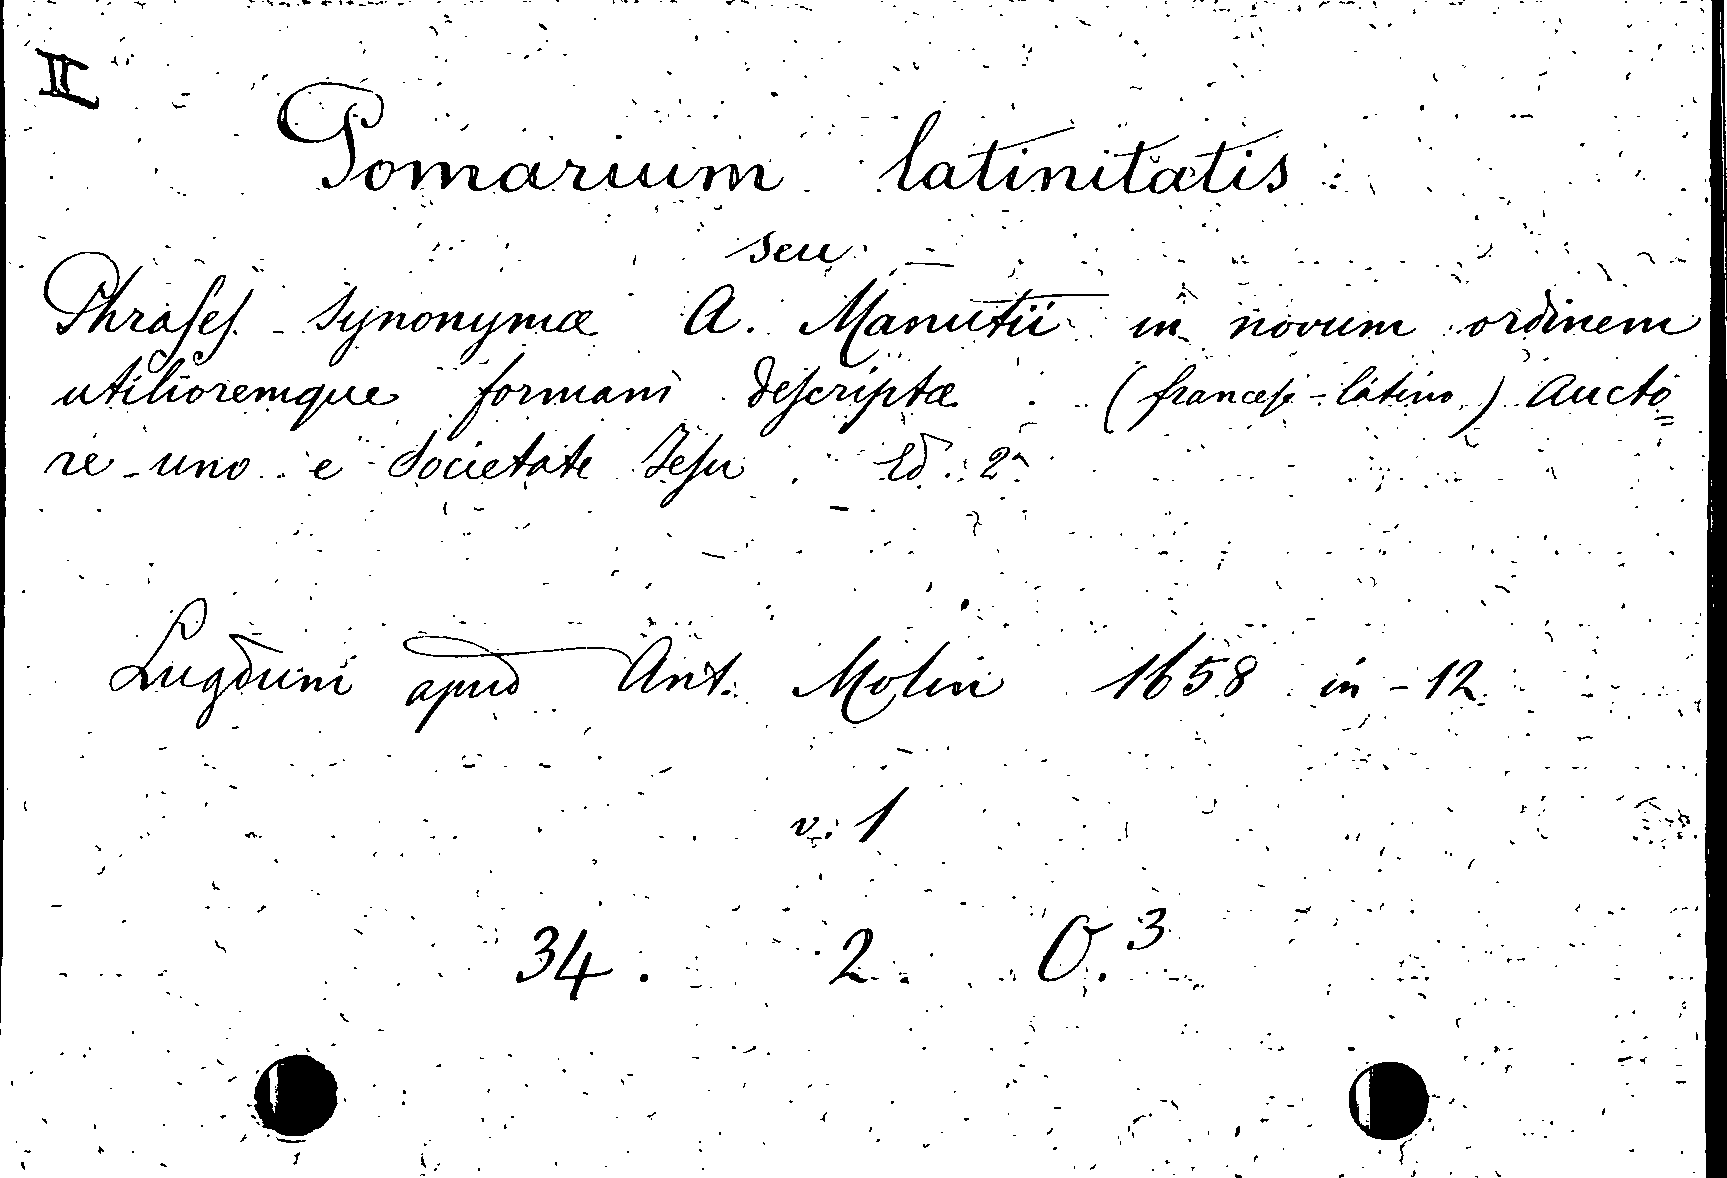 II
Pomarium latinitatis
seu
Phrases synonymæ A. Manutii in novum ordinem
utilioremque formam descriptæ (francese-latino) Aucto=
re uno e Societate Jesu Ed. 2ª
Lugduni apud Ant. Molin 1658 in-12
v. 1
34. 2. O.³